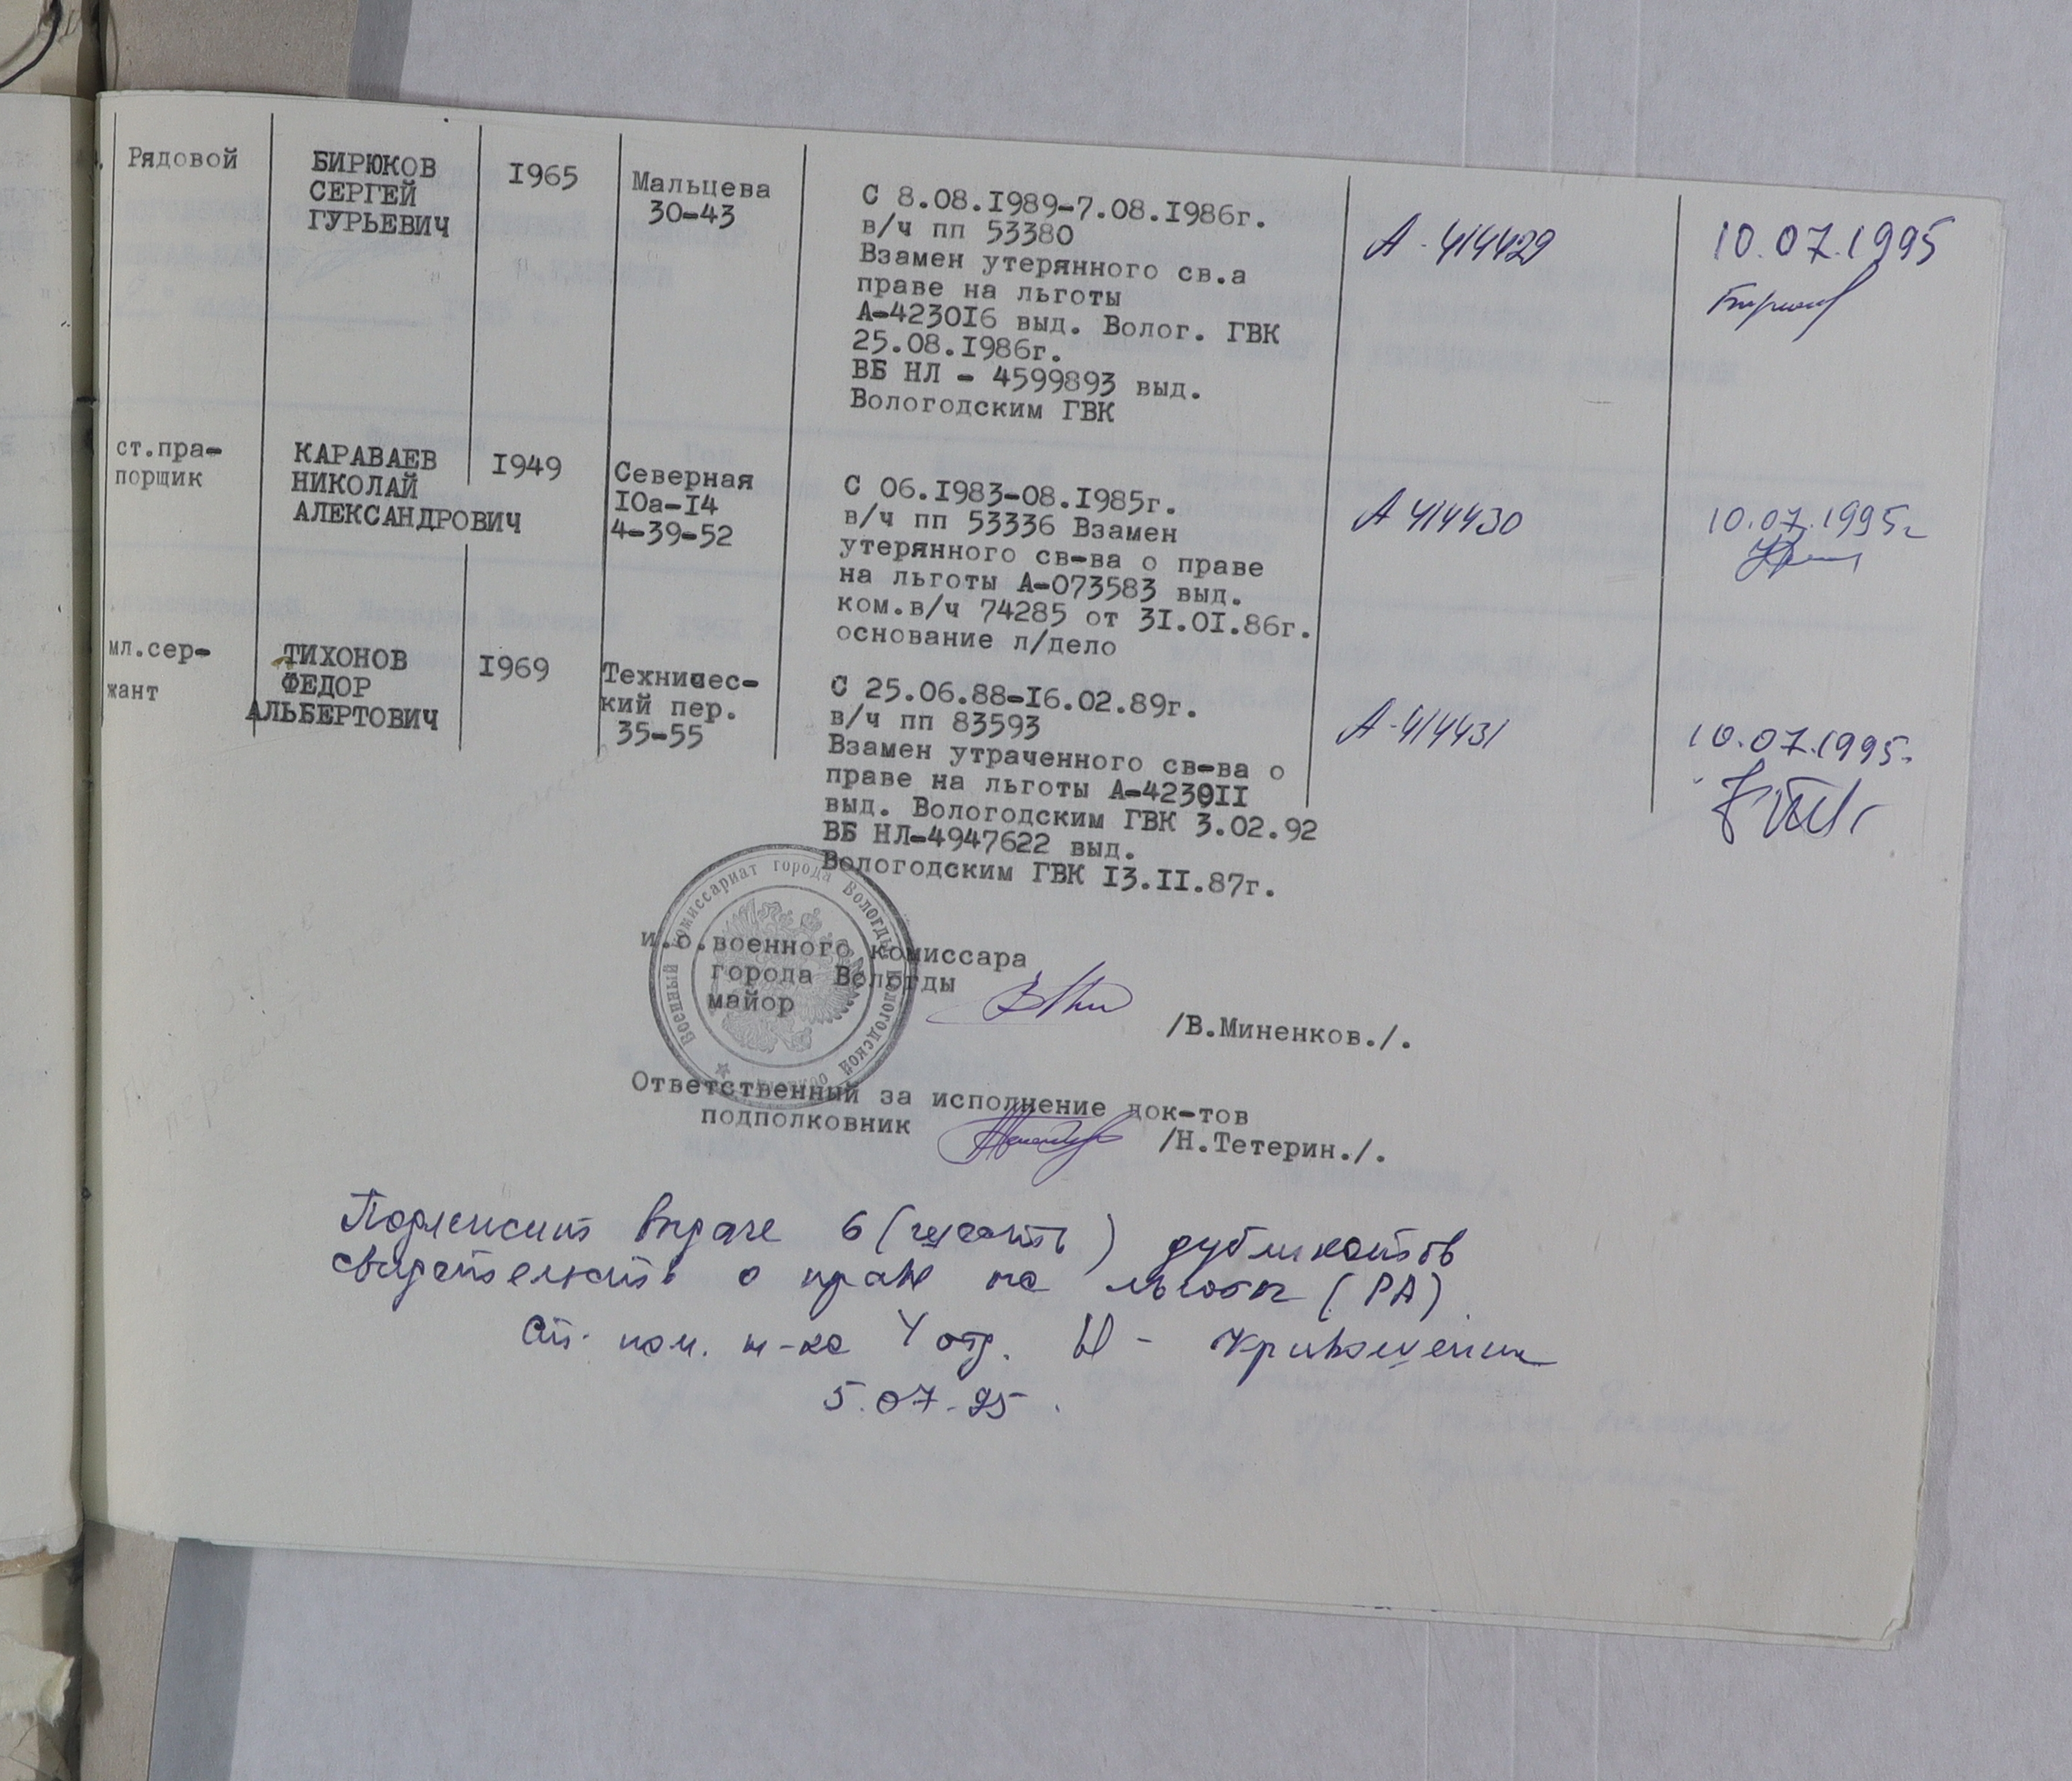 Рядовой
БИРЮКОВ
СЕРГЕЙ
ГУРЬЕВИЧ
1965
Мальцева
30-43
С 8.08.1989-7.08.1986г.
в/ч пп 53380
Взамен утерянного св.а
праве на льготы
А-423016 выд. Волог. ГВК
25.08.1986г.
ВБ НЛ - 4599893 выд.
Вологодским ГВК
А-414429
10.07.1995
Бирюков
ст.пра-
порщик
КАРАВАЕВ
НИКОЛАЙ
АЛЕКСАНДРОВИЧ
1949
Северная
10а-14
4-39-52
С 06.1983-08.1985г.
в/ч пп 53336 Взамен
утерянного св-ва о праве
на льготы А-073583 выд.
ком.в/ч 74285 от 31.01.86г.
основание л/дело
А 414430
10.07.1995г
мл.сер-
жант
ТИХОНОВ
ФЕДОР
АЛЬБЕРТОВИЧ
1969
Техничес-
кий пер.
35-55
С 25.06.88-16.02.89г.
в/ч пп 83593
Взамен утраченного св-ва о
праве на льготы А-423011
выд. Вологодским ГВК 3.02.92
ВБ НЛ-4947622 выд.
Вологодским ГВК 13.11.87г.
А-414431
10.07.1995.
Военный комиссариат города Вологды Вологодской области
и.о.военного комиссара
города Вологды
майор
/В.Миненков./.
Ответственный за исполнение док-тов
подполковник /Н.Тетерин./.
Подлежит выдаче 6 (шесть) дубликатов
свидетельств о праве на льготы (РА).
Ст. пом. н-ка 4 отд.
5.07.95.